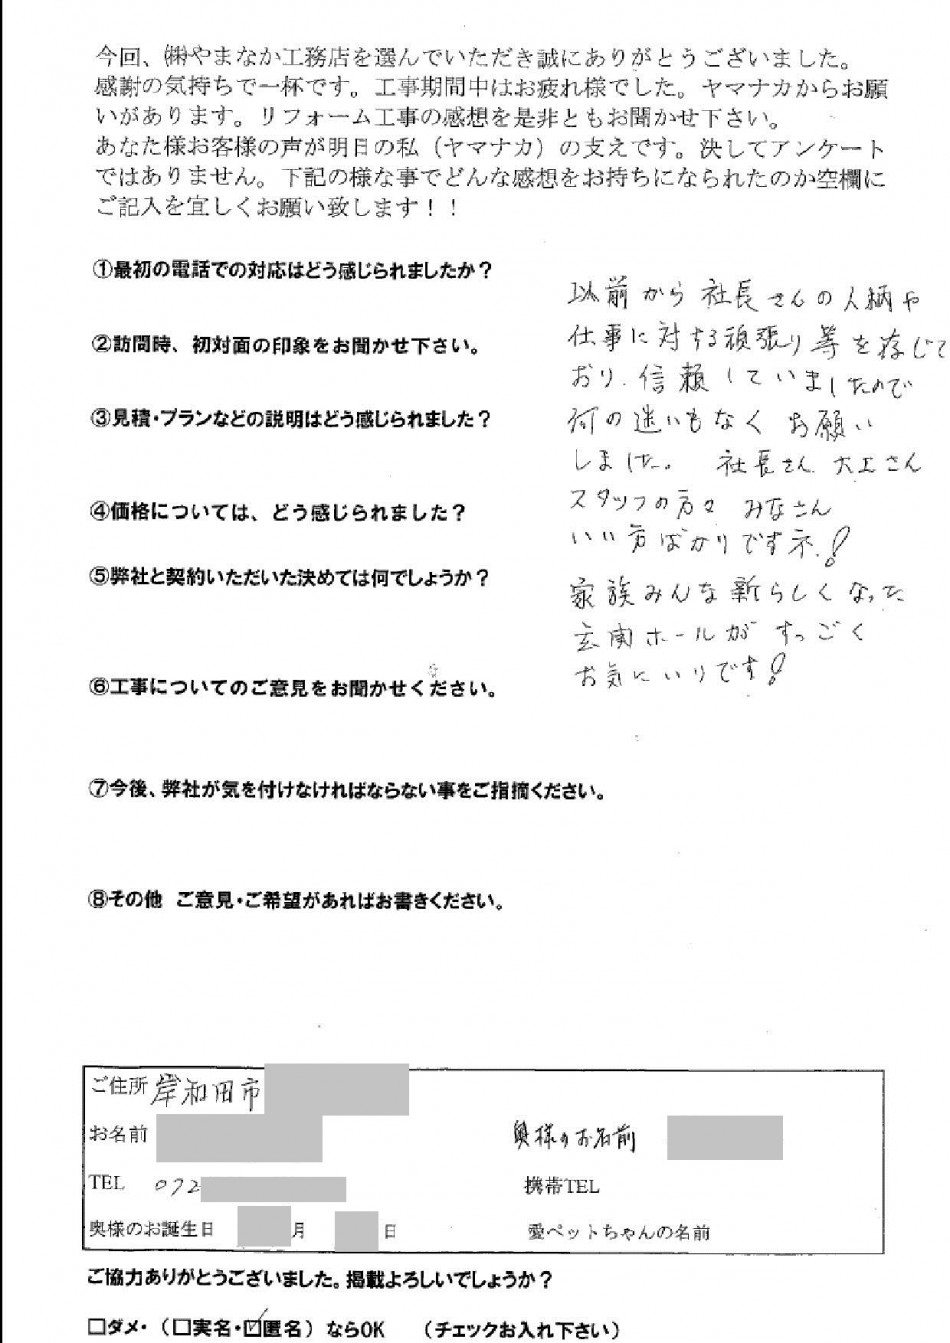 今回、㈱やまなか工務店を選んでいただき誠にありがとうございました。
感謝の気持ちで一杯です。工事期間中はお疲れ様でした。ヤマナカからお願
いがあります。リフォーム工事の感想を是非ともお聞かせ下さい。
あなた様お客様の声が明日の私（ヤマナカ）の支えです。決してアンケート
ではありません。下記の様な事でどんな感想をお持ちになられたのか空欄に
ご記入を宜しくお願い致します！！
①最初の電話での対応はどう感じられましたか？
②訪問時、初対面の印象をお聞かせ下さい。
③見積・プランなどの説明はどう感じられました？
④価格については、どう感じられました？
⑤弊社と契約いただいた決めては何でしょうか？
⑥工事についてのご意見をお聞かせください。
⑦今後、弊社が気を付けなければならない事をご指摘ください。
⑧その他 ご意見・ご希望があればお書きください。
以前から社長さんの人柄や
仕事に対する頑張り等を存じて
おり、信頼していましたので
何の迷いもなく お願い
しました。 社長さん 大工さん
スタッフの方々 みなさん
いい方ばかりですネ！
家族みんな新らしくなった
玄関ホールが すっごく
お気にいりです！
ご住所 岸和田市
お名前 奥様のお名前
TEL 072 携帯TEL
奥様のお誕生日 月 日 愛ペットちゃんの名前
ご協力ありがとうございました。掲載よろしいでしょうか？
□ダメ・（□実名・☑匿名）ならOK （チェックお入れ下さい）